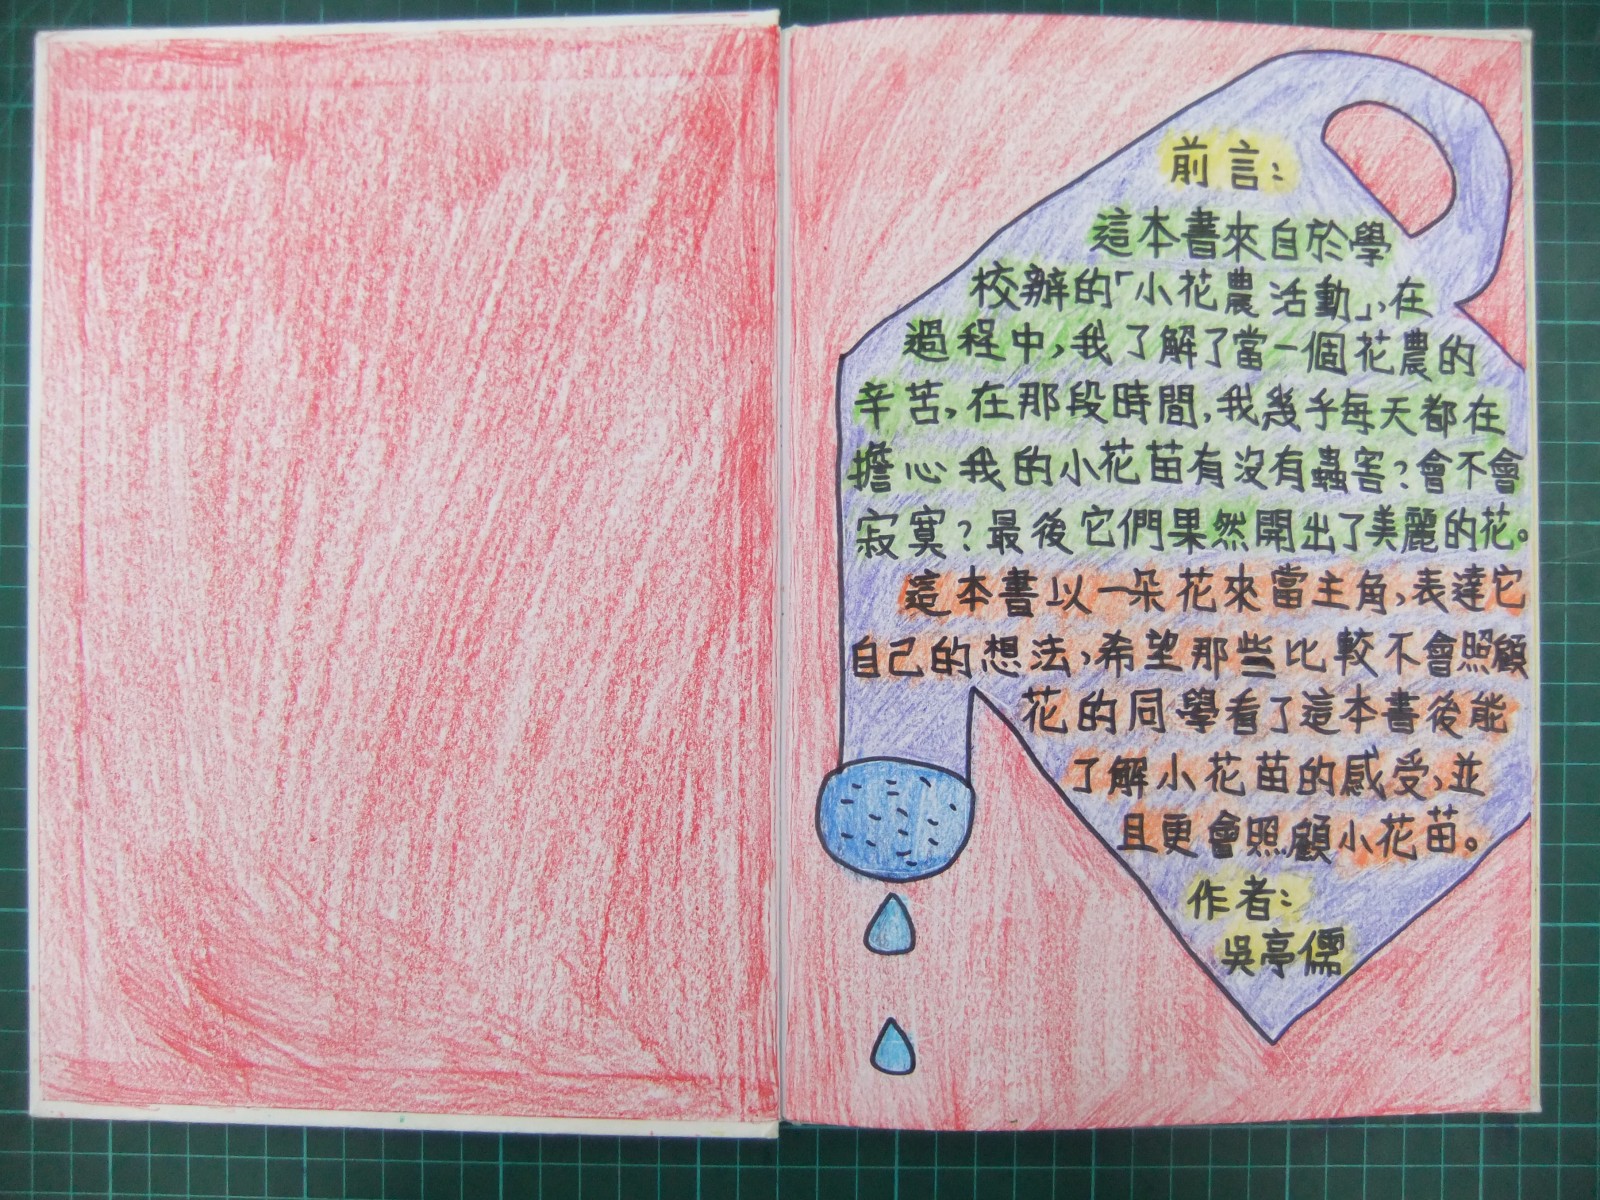 前言:
這本書來自於學
校辦的「小花農活動」,在
過程中,我了解了當一個花農的
辛苦,在那段時間,我幾乎每天都在
擔心我的小花苗有沒有蟲害?會不會
寂寞?最後它們果然開出了美麗的花。
這本書以一朵花來當主角,表達它
自己的想法,希望那些比較不會照顧
花的同學看了這本書後能
了解小花苗的感受,並
且更會照顧小花苗。
作者:
吳亭儒